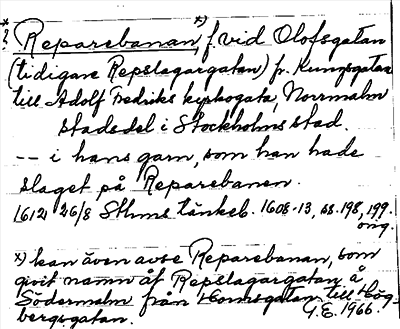 *
? Reparebanan, *) f. vid Olofsgatan
(tidigare Repslagargatan) fr. Kungsgatan
till Adolf Fredriks kyrkogata, Norrmalm
stadsdel i Stockholms stad.
-- i hans garn, som han hade
slaget på Reparebanen.
1612 26/8 Sthms tänkeb. 1608-13, ss. 198, 199.
orig.
*) kan även avse Reparebanan, som
givit namn åt Repslagargatan å
Södermalm från Hornsgatan till Hög-
bergsgatan. G.E. 1966.